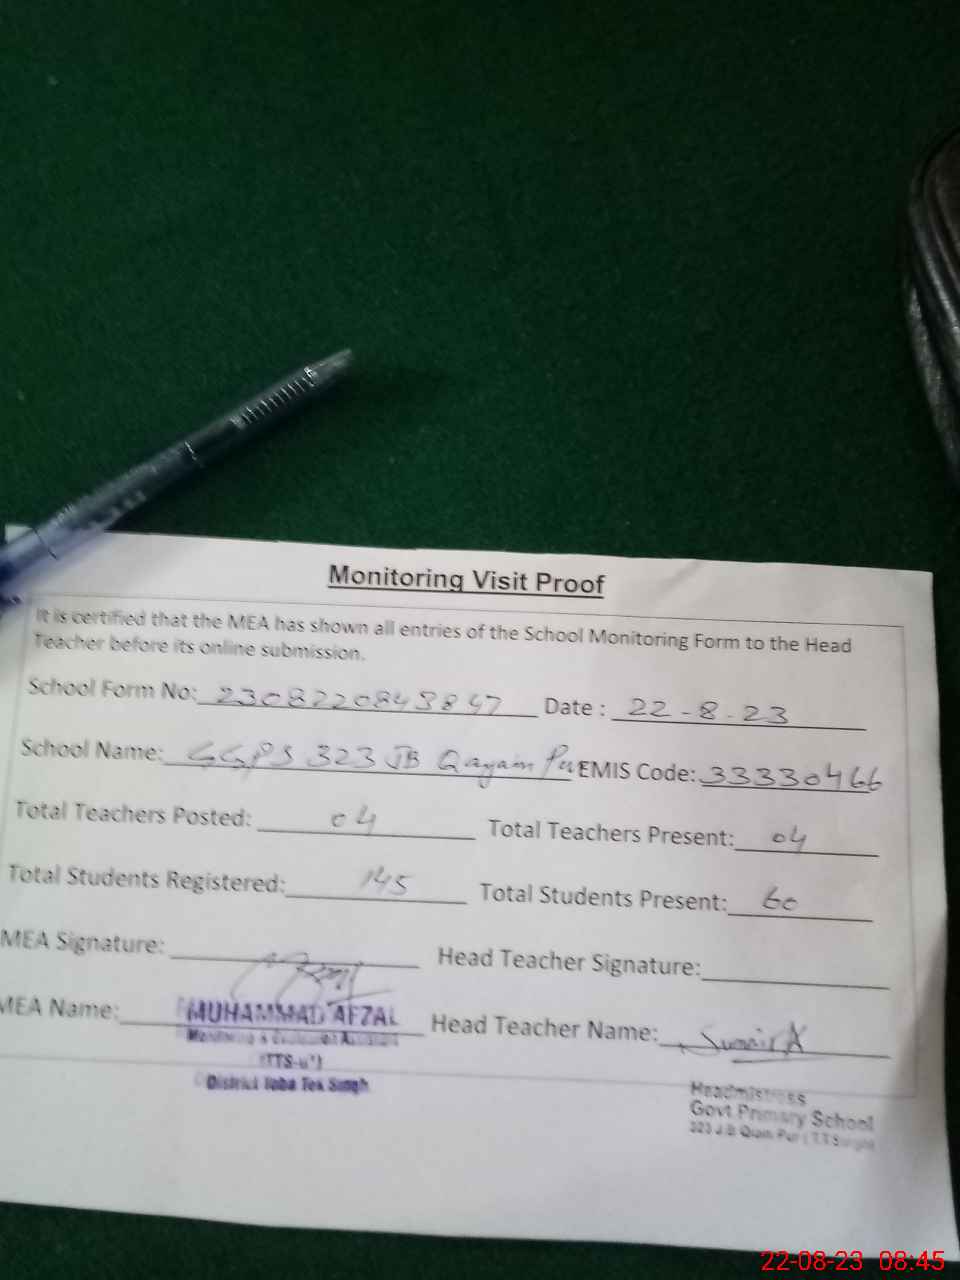 Monitoring Visit Proof
It is certified that the MEA has shown all entries of the School Monitoring Form to the Head
Teacher before its online submission.
School Form No: 2308220843847 Date : 22-8-23
School Name: GGPS 323 JB Qayam Pur EMIS Code: 33330466
Total Teachers Posted: 04 Total Teachers Present: 04
Total Students Registered: 145 Total Students Present: 60
MEA Signature: Head Teacher Signature:
MEA Name: MUHAMMAD AFZAL Head Teacher Name:
Monitoring & Evaluation Assistant
District Toba Tek Singh
Headmistress
Govt Primary School
323 J.B Qiam Pur (T.T Singh)
22-08-23 08:45